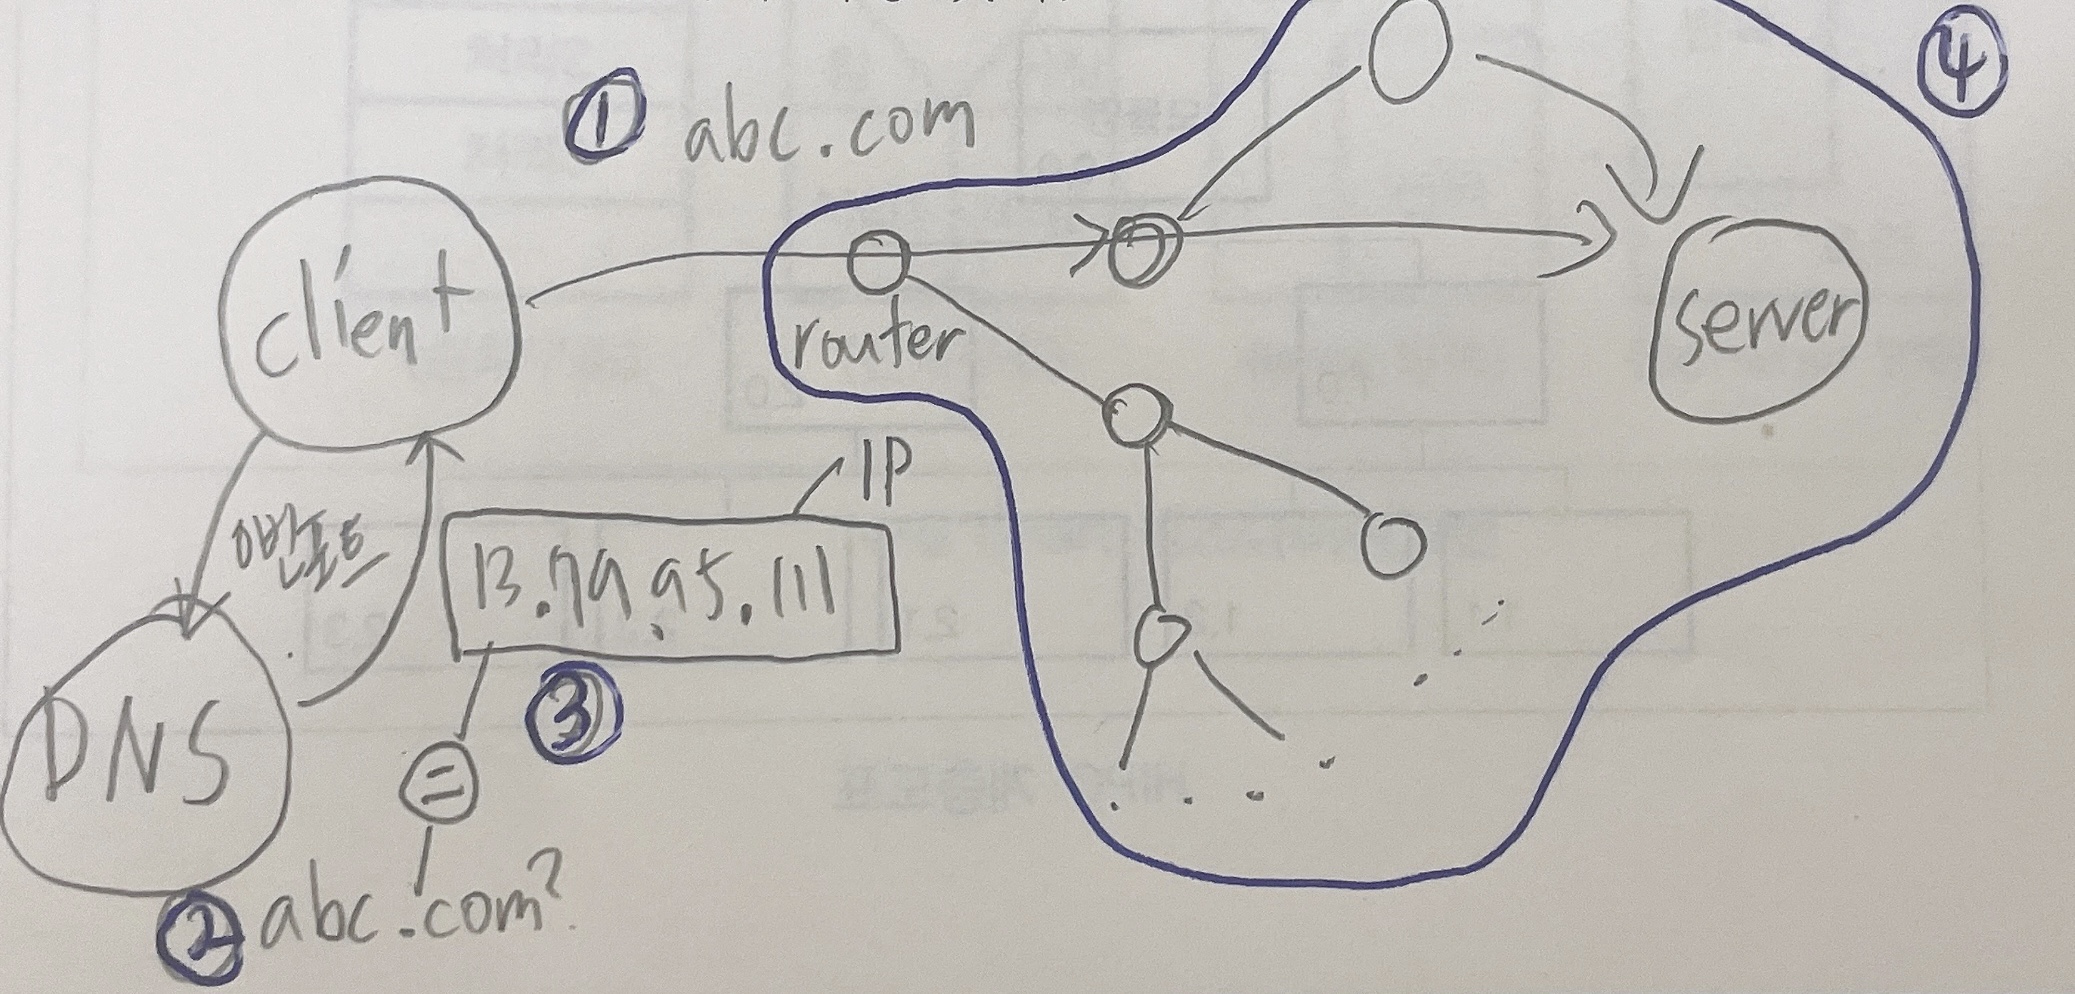 ① abc.com
④
client
router
server
IP
13.79.95.111
③
DNS
=
② abc.com?